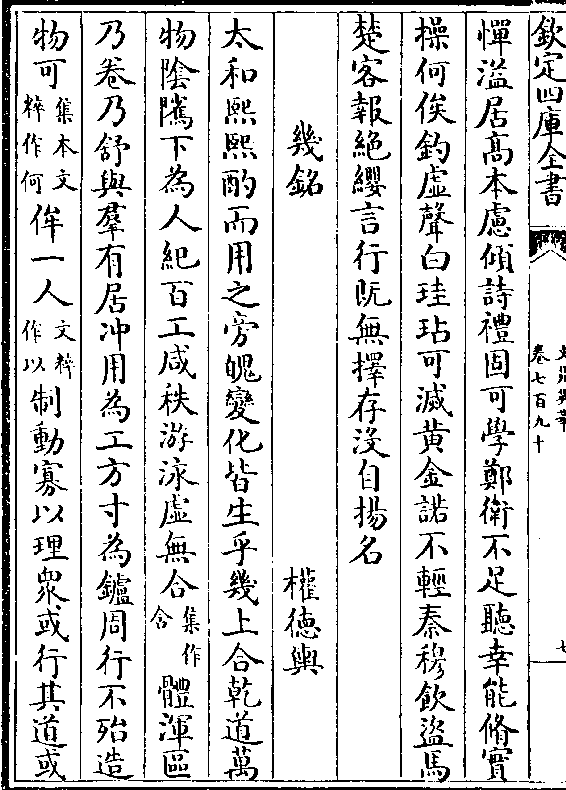 欽定四庫全書
文苑英華
卷七百九十
七
憚溢居高本慮傾詩禮固可學鄭衛不足聽幸能脩實
操何俟釣虛聲白珪玷可滅黄金諾不輕秦穆飲盜馬
楚客報絶纓言行既無擇存沒自揚名
幾銘 權徳輿
太和熙熙酌而用之旁魄變化皆生乎幾上合乾道萬
物陰隲下為人紀百工咸秩游泳虛無合集作含體渾區
乃卷乃舒與羣有居冲用為工方寸為鑪周行不殆造
物可集本文粹作何侔一人文粹作以制動寡以理衆或行其道或